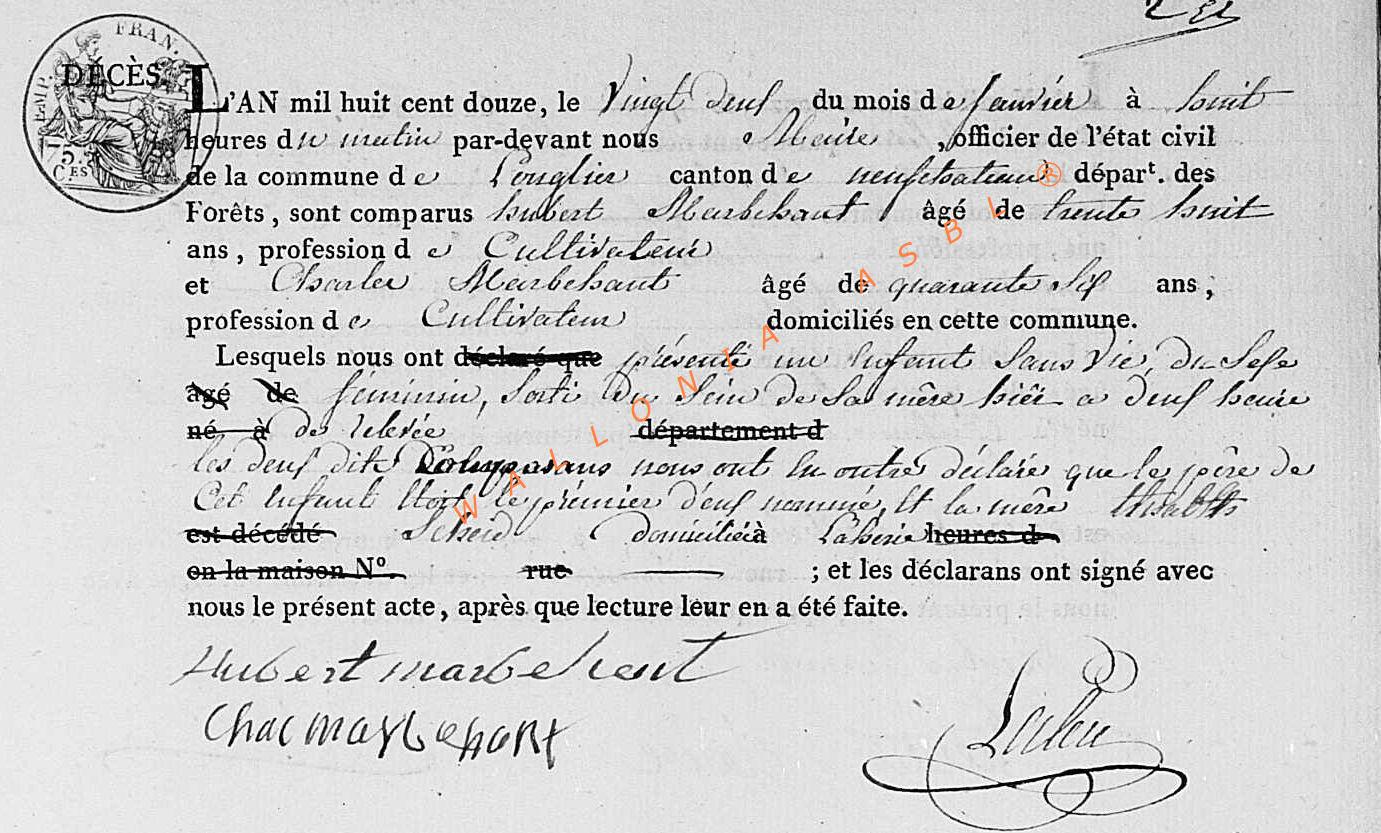 FRAN.
TEMP.
75.
CES
DÉCÈS.
L'AN mil huit cent douze, le Vingt deux du mois de janvier à huit
heures du matin par-devant nous Maire, officier de l'état civil
de la commune de Longlier canton de neufchateau départ. des
Forêts, sont comparus hubert Marbehant âgé de trente huit
ans, profession de Cultivateur
et Charles Marbehant âgé de quarante six ans;
profession de Cultivateur domiciliés en cette commune.
Lesquels nous ont déclaré que présenté un Enfant Sans Vie, du Sexe
âgé de féminin, Sorti du Sein de Sa mère hièr a deux heure
né à de relevée département d
les deux dits Comparans nous ont En outre déclaré que le père de
Cet Enfant Etoit le prémier d'eux nommé, Et la mère
est décédé domicilié à heures d
en la maison N°. rue ; et les déclarans ont signé avec
nous le présent acte, après que lecture leur en a été faite.
Hubert marbehent
WALLONIA ASBL ®